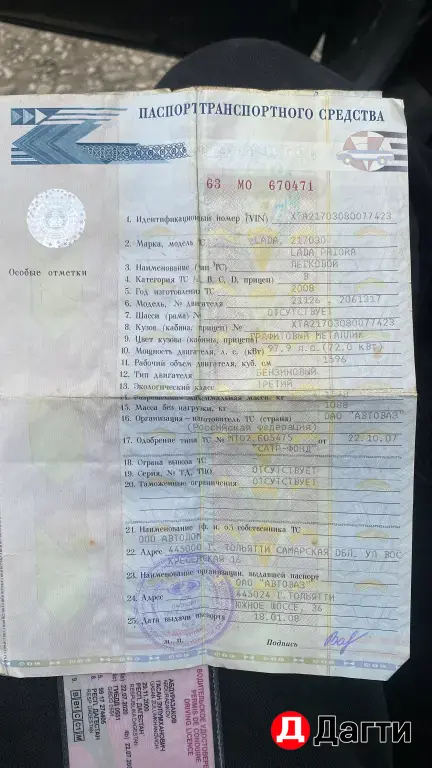 ПАСПОРТ ТРАНСПОРТНОГО СРЕДСТВА
63 МО 670471
Особые отметки
1. Идентификационный номер (VIN) XTA21703080077423
2. Марка, модель ТС LADA, 217030
LADA PRIORA
3. Наименование (тип ТС) ЛЕГКОВОЙ
4. Категория ТС (А, В, С, D, прицеп) B
5. Год изготовления ТС 2008
6. Модель, № двигателя 21126, 2061317
7. Шасси (рама) № ОТСУТСТВУЕТ
8. Кузов (кабина, прицеп) № XTA21703080077423
9. Цвет кузова (кабины, прицепа) ГРАФИТОВЫЙ МЕТАЛЛИК
10. Мощность двигателя, л. с. (кВт) 97.9 л.с. (72.0 кВт)
11. Рабочий объем двигателя, куб. см 1596
12. Тип двигателя БЕНЗИНОВЫЙ
13. Экологический класс ТРЕТИЙ
максимальная масса, кг
15. Масса без нагрузки, кг 1088
16. Организация-изготовитель ТС (страна) ОАО "АВТОВАЗ"
(Российская Федерация)
17. Одобрение типа ТС № от 22.10.07
"САТР-ФОНД"
18. Страна вывоза ТС
19. Серия, № ТД, ТПО ОТСУТСТВУЕТ
20. Таможенные ограничения ОТСУТСТВУЕТ
21. Наименование (ф. и. о.) собственника ТС
ООО АВТОДОМ
22. Адрес 445000 Г. ТОЛЬЯТТИ САМАРСКАЯ ОБЛ. УЛ ВОС
КРЕСЕНСКАЯ 16
23. Наименование организации, выдавшей паспорт
ОАО "АВТОВАЗ"
24. Адрес 445024 Г.ТОЛЬЯТТИ
ЮЖНОЕ ШОССЕ, 36
25. Дата выдачи паспорта 18.01.08
М. П. Подпись
ВОДИТЕЛЬСКОЕ УДОСТОВЕРЕ
PERMIS DE CONDUIRE
DRIVING LICENCE
АБДУРАЗАКОВ
25.11.2000
РЕСП. ДАГЕСТАН
22.07.20
ГИБДД 0501
РЕСП. ДАГЕСТАН
B B1 C C1 M
Дагти